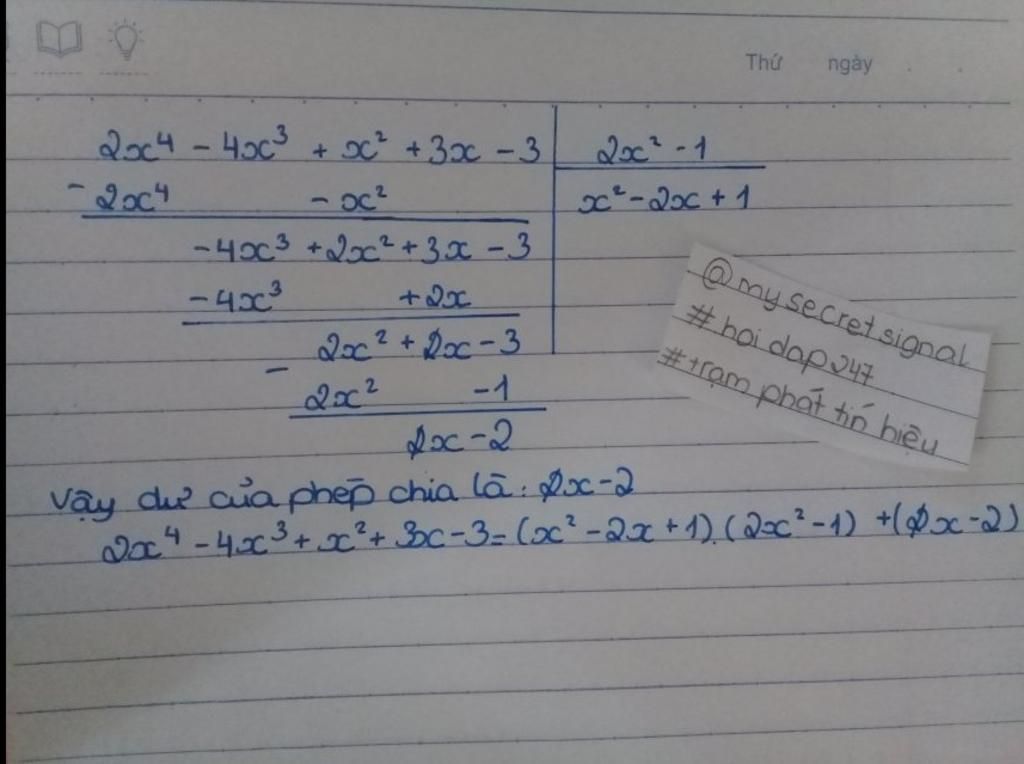 Thứ ngày
2x⁴ - 4x³ + x² + 3x - 3 2x² - 1
- 2x⁴ - x² x² - 2x + 1
-4x³ + 2x² + 3x - 3
-4x³ + 2x
2x² + x - 3
- 2x² - 1
x - 2
@mysecretsignal
#hoidap247
#trạm phát tín hiệu
Vậy dư của phép chia là: x - 2
2x⁴ - 4x³ + x² + 3x - 3 = (x² - 2x + 1).(2x² - 1) + (x - 2)